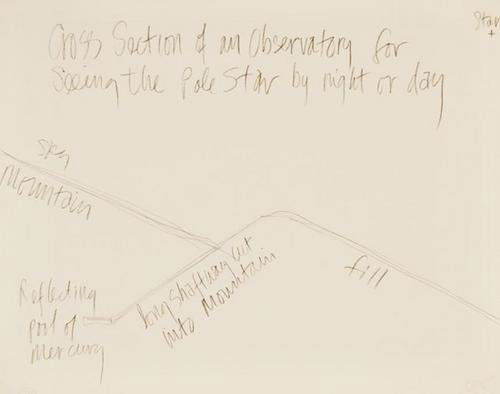 Cross Section of an Observatory for
Seeing the Pole Star by night or day
Star
sky
Mountain
long shaftway cut
into Mountain
fill
Reflecting
pool of
mercury